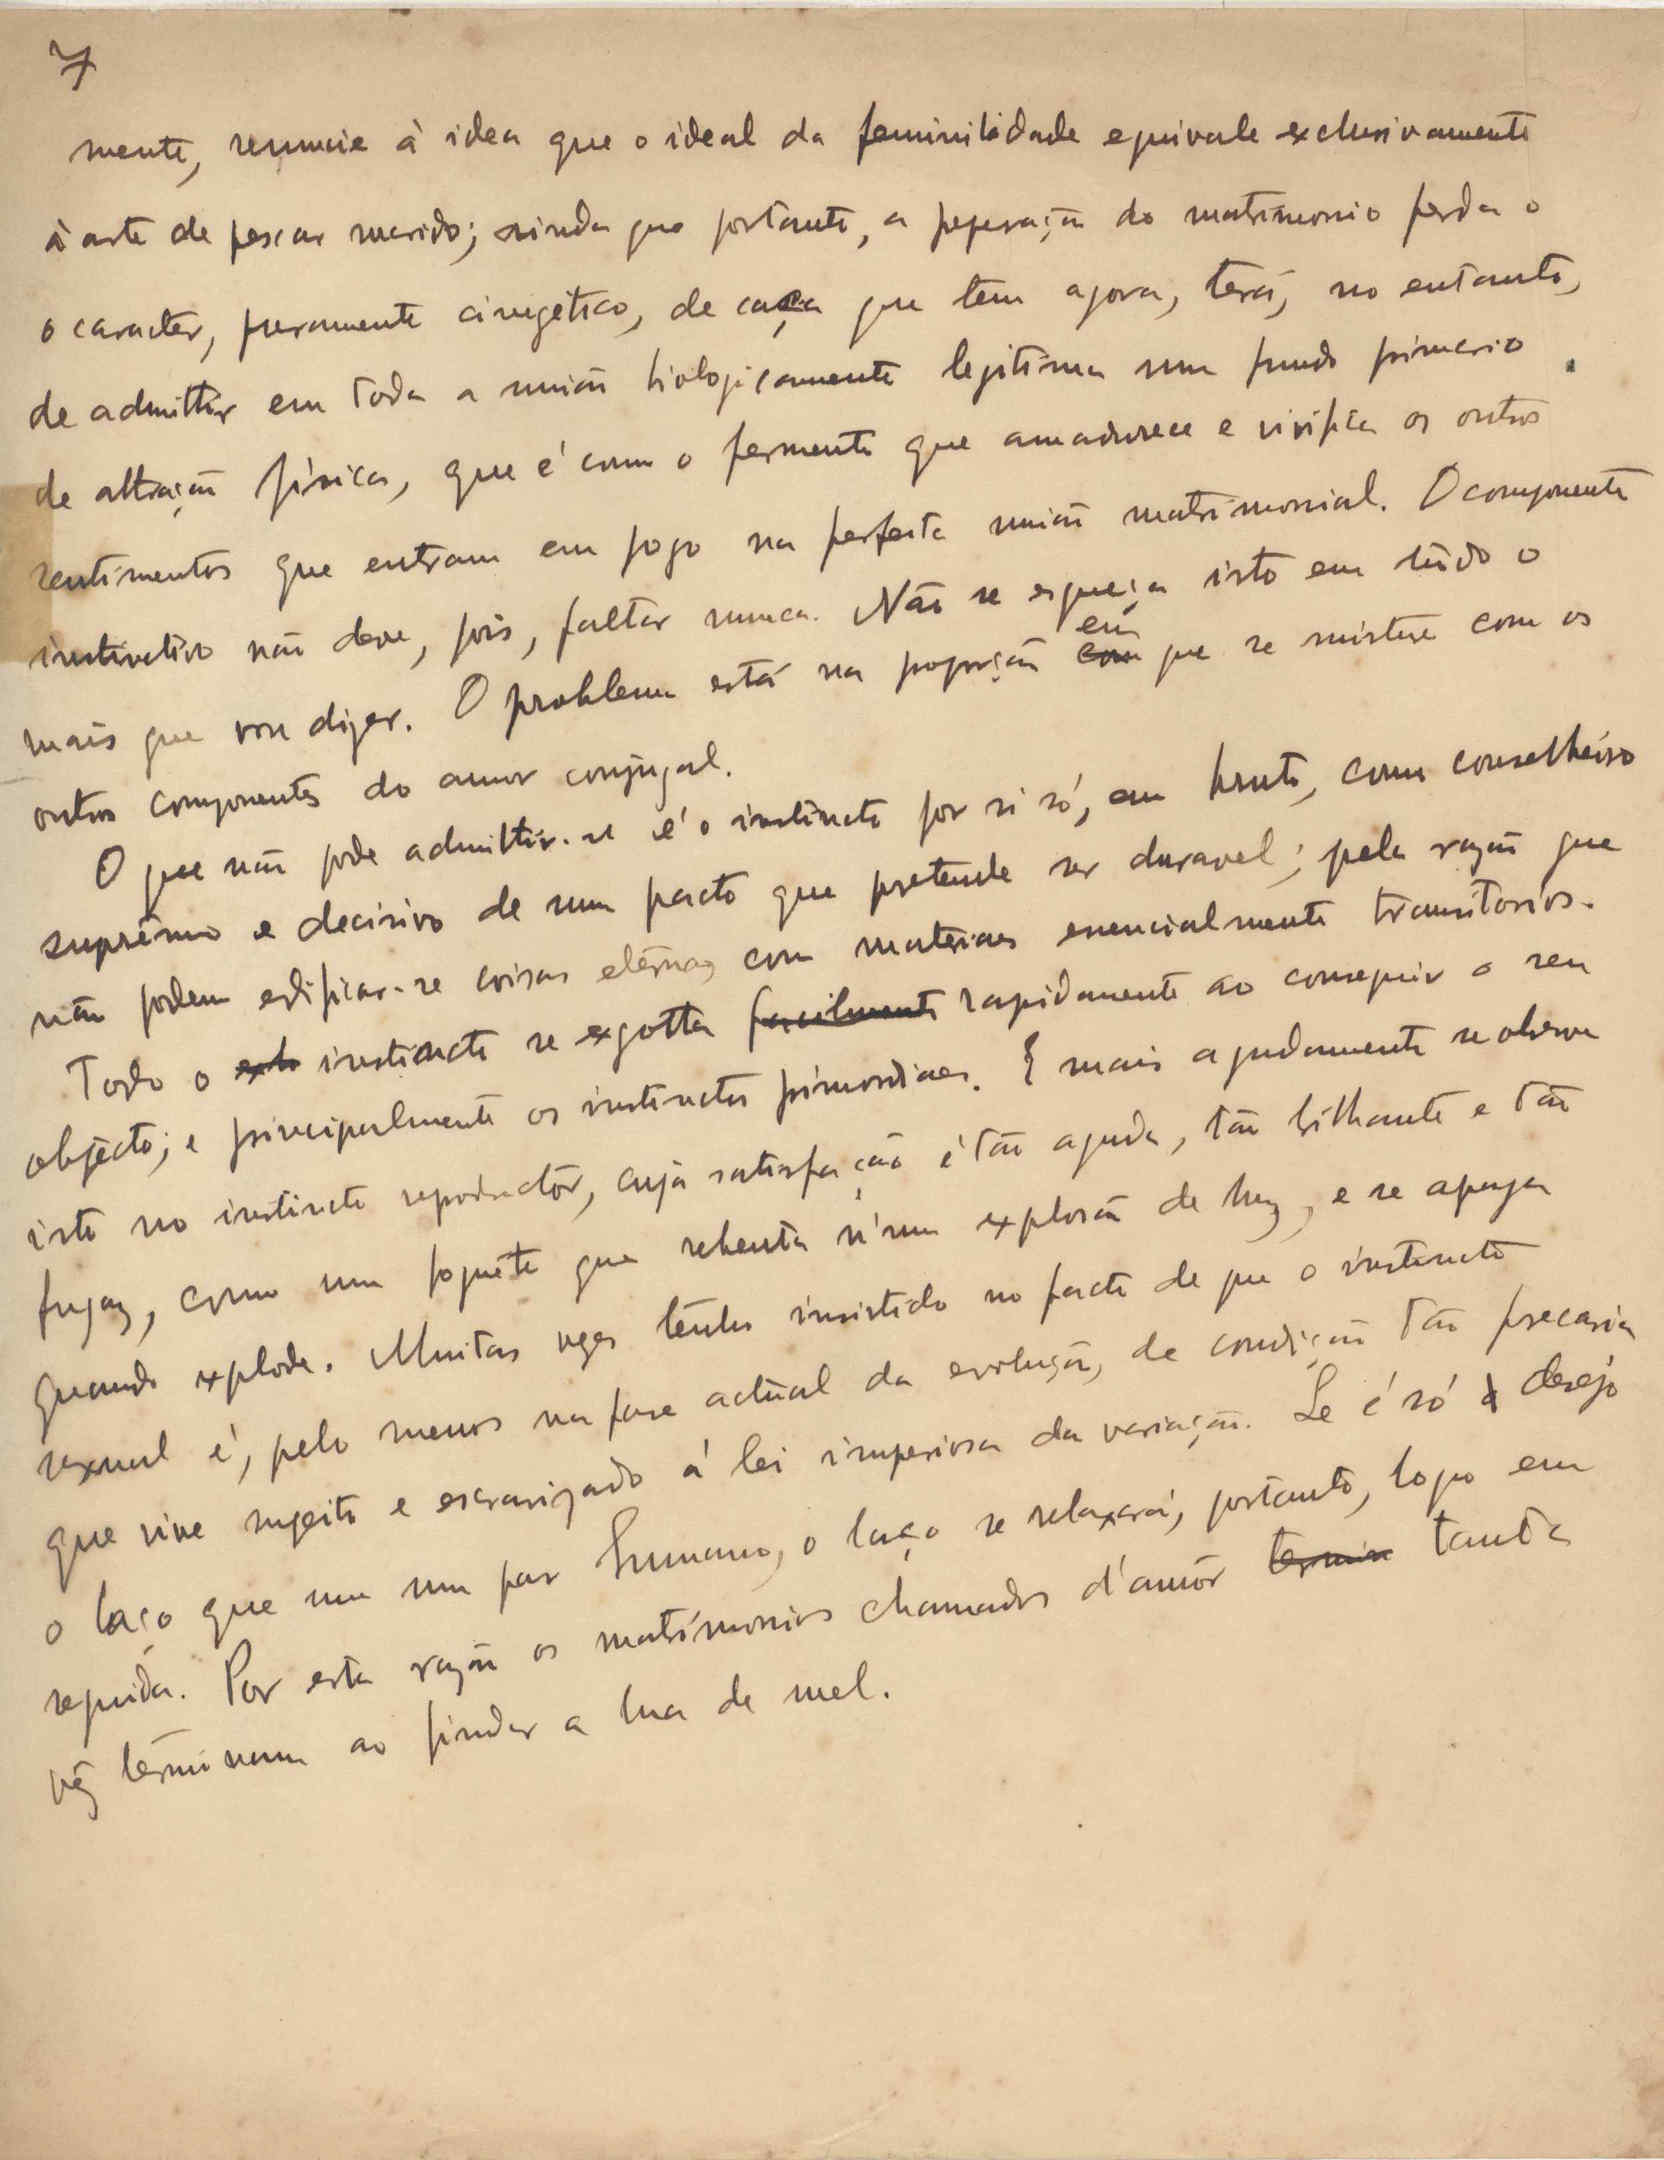 7
mente, renuncie à idea que o ideal da feminilidade equivale exclusivamente
à arte de pescar marido; ainda que portanto, a preparação do matrimonio perda o
o caracter, puramente cinegético, de caça que tem agora, terá, no entanto,
de admittir em toda a união biologicamente legitima um fundo primario
de attração física, que é como o fermento que amadurece e vivifica os outros
sentimentos que entram em jogo na perfeita união matrimonial. O componente
instinctivo não deve, pois, faltar nunca. Não se esqueça isto em tùdo o
mais que vou dizer. O problema está na proporção com em que se misture com os
outros componentes do amor conjugal.
O que não pode admittir-se é o instincto por si só, em bruto, como conselheiro
suprêmo e decisivo de um pacto que pretende ser duravel; pela razão que
não podem edificar-se coisas etérnas com materiaes essencialmente transitorios.
Todo o instincto se exgotta facilmente rapidamente ao conseguir o seu
objécto; e principalmente os instinctos primordiaes. E mais agudamente se observa
isto no instincto reproductôr, cuja satisfação é tão aguda, tão brilhante e tão
fugaz, como um foguête que rebenta n'um explosão de luz, e se apaga
quando explode. Muitas vezes tenho insistido no facto de que o instincto
sexual é, pelo menos na fase actùal da evolução, de condição tão precaria
que vive sujeito e escravizado á lei imperiosa da variação. Se é só o desêjo
o laço que une um par humano, o laço se relaxará, portanto, logo em
seguida. Por esta razão os matrimonios chamados d'amôr termin tanta
vêz términam ao findar a lua de mel.